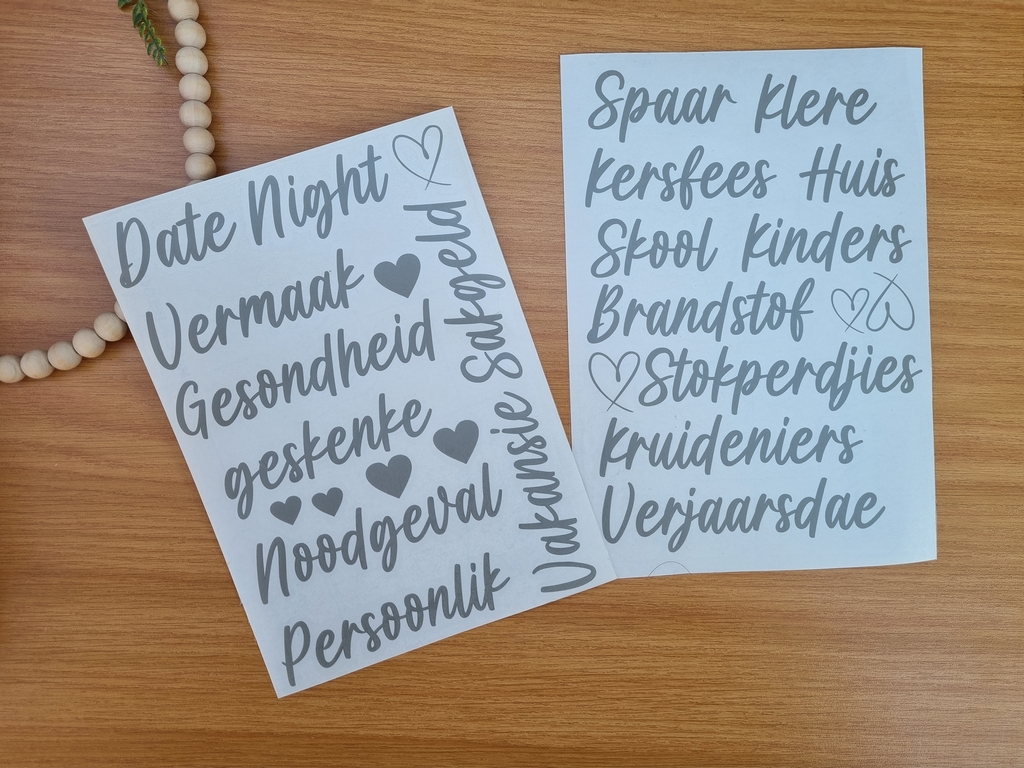 Date Night
Vermaak
Gesondheid
geskenke
Noodgeval
Persoonlik
Vakansie Sakgeld
Spaar Klere
Kersfees Huis
Skool Kinders
Brandstof
Stokperdjies
Kruideniers
Verjaarsdae